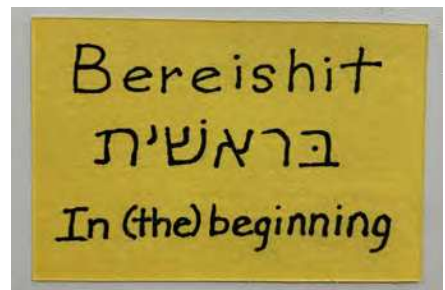 Bereishit
בּראשׁית
In (the) beginning